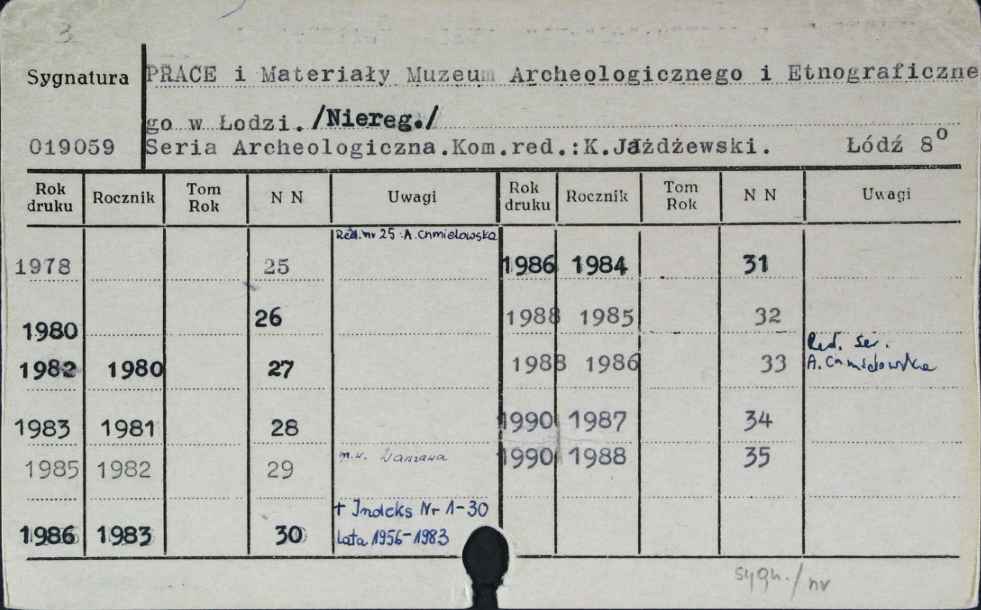 3
Sygnatura PRACE i Materiały Muzeum Archeologicznego i Etnograficzne
go w Łodzi. /Niereg./
019059 Seria Archeologiczna.Kom.red.:K.Jażdżewski. Łódź 8°
Rok druku Rocznik Tom Rok N N Uwagi Rok druku Rocznik Tom Rok N N Uwagi
Red. nr 25 : A. Chmielowska
1978 25 1986 1984 31
1980 26 1988 1985 32
1982 1980 27 1988 1986 33 Red. ser. A. Chmielowska
1983 1981 28 1990 1987 34
1985 1982 29 m.w. Warszawa 1990 1988 35
1986 1983 30 + Indeks Nr 1-30
Lata 1956-1983
sygn./nr